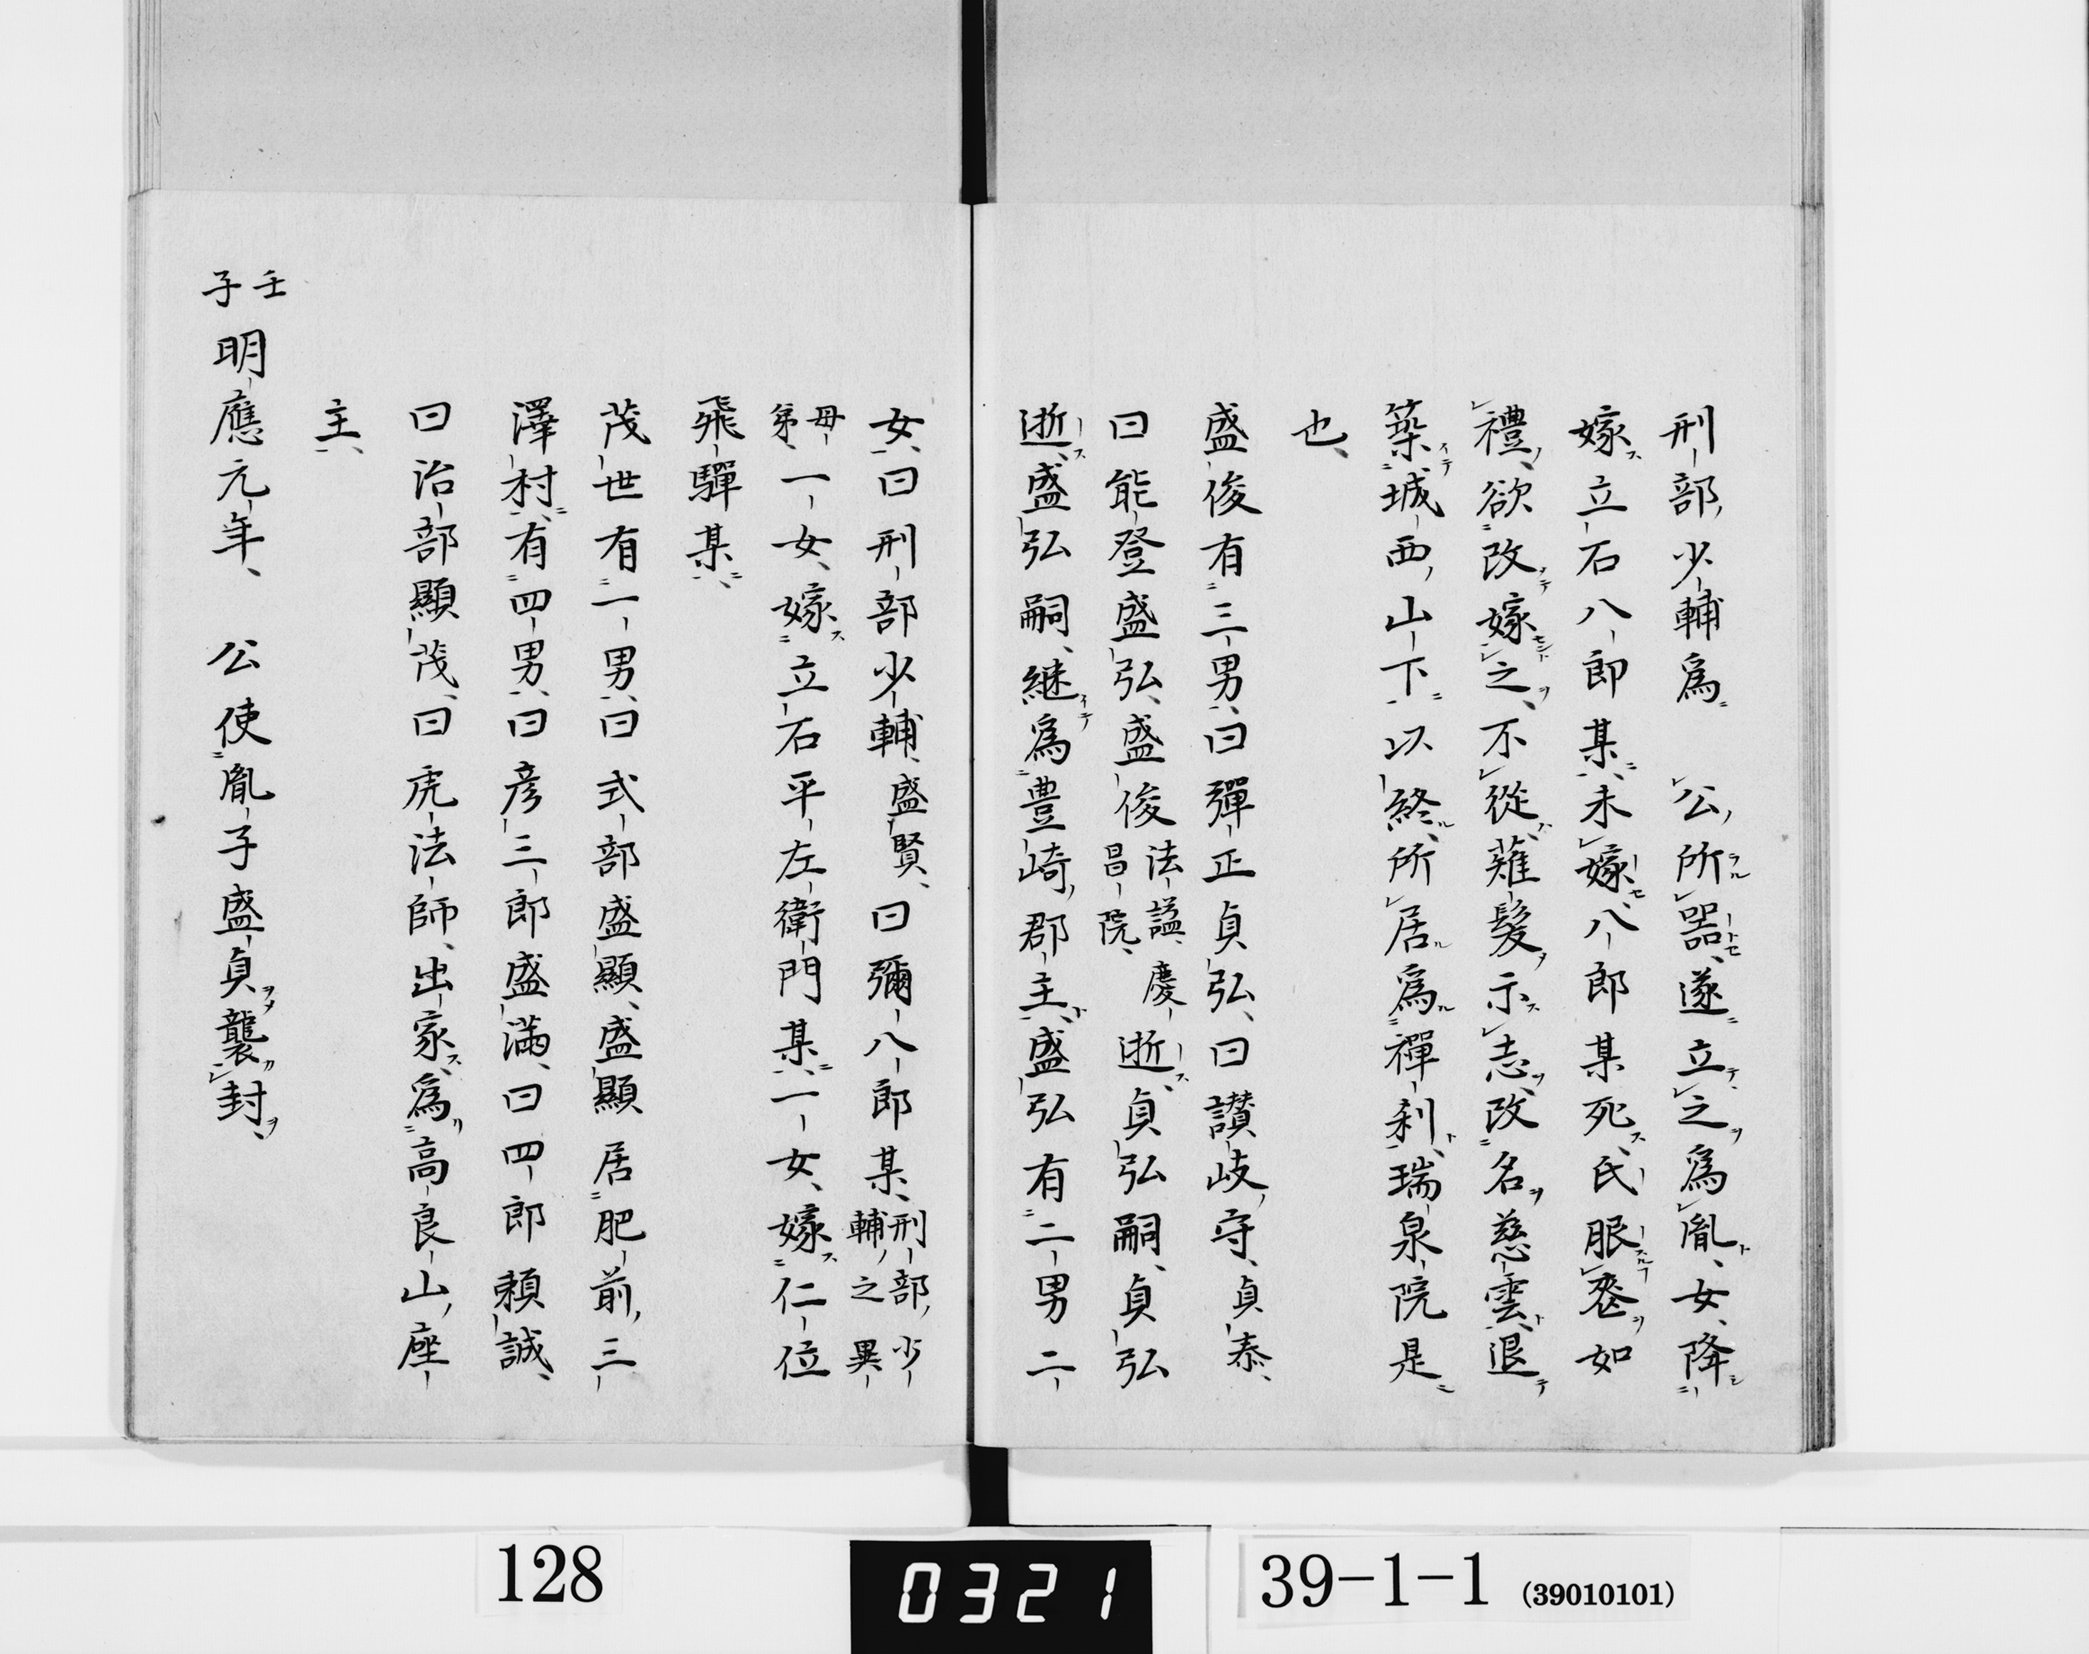 刑部少輔爲　公所噐遂立之爲胤女降
嫁立石八郎某未嫁八郎某死氏服喪如
禮欲改嫁之不從薙髮示志改名慈雲退
築城西山下以終所居爲禪刹瑞泉院是
也
盛俊有三男曰彈正貞弘曰讃岐守貞泰
曰能登盛弘盛俊法謚慶昌院逝貞弘嗣貞弘
逝盛弘嗣継爲豊崎郡主盛弘有二男二
女曰刑部少輔盛賢曰彌八郎某刑部少輔之異
母弟一女嫁立石平左衛門某一女嫁仁位
飛驒某
茂世有一男曰式部盛顯盛顯居肥前三
澤村有四男曰彦三郎盛滿曰四郎頼誠
曰治部顯茂曰虎法師出家爲高良山座
主
壬子明應元年　公使胤子盛貞襲封
128
0321
39-1-1 (39010101)